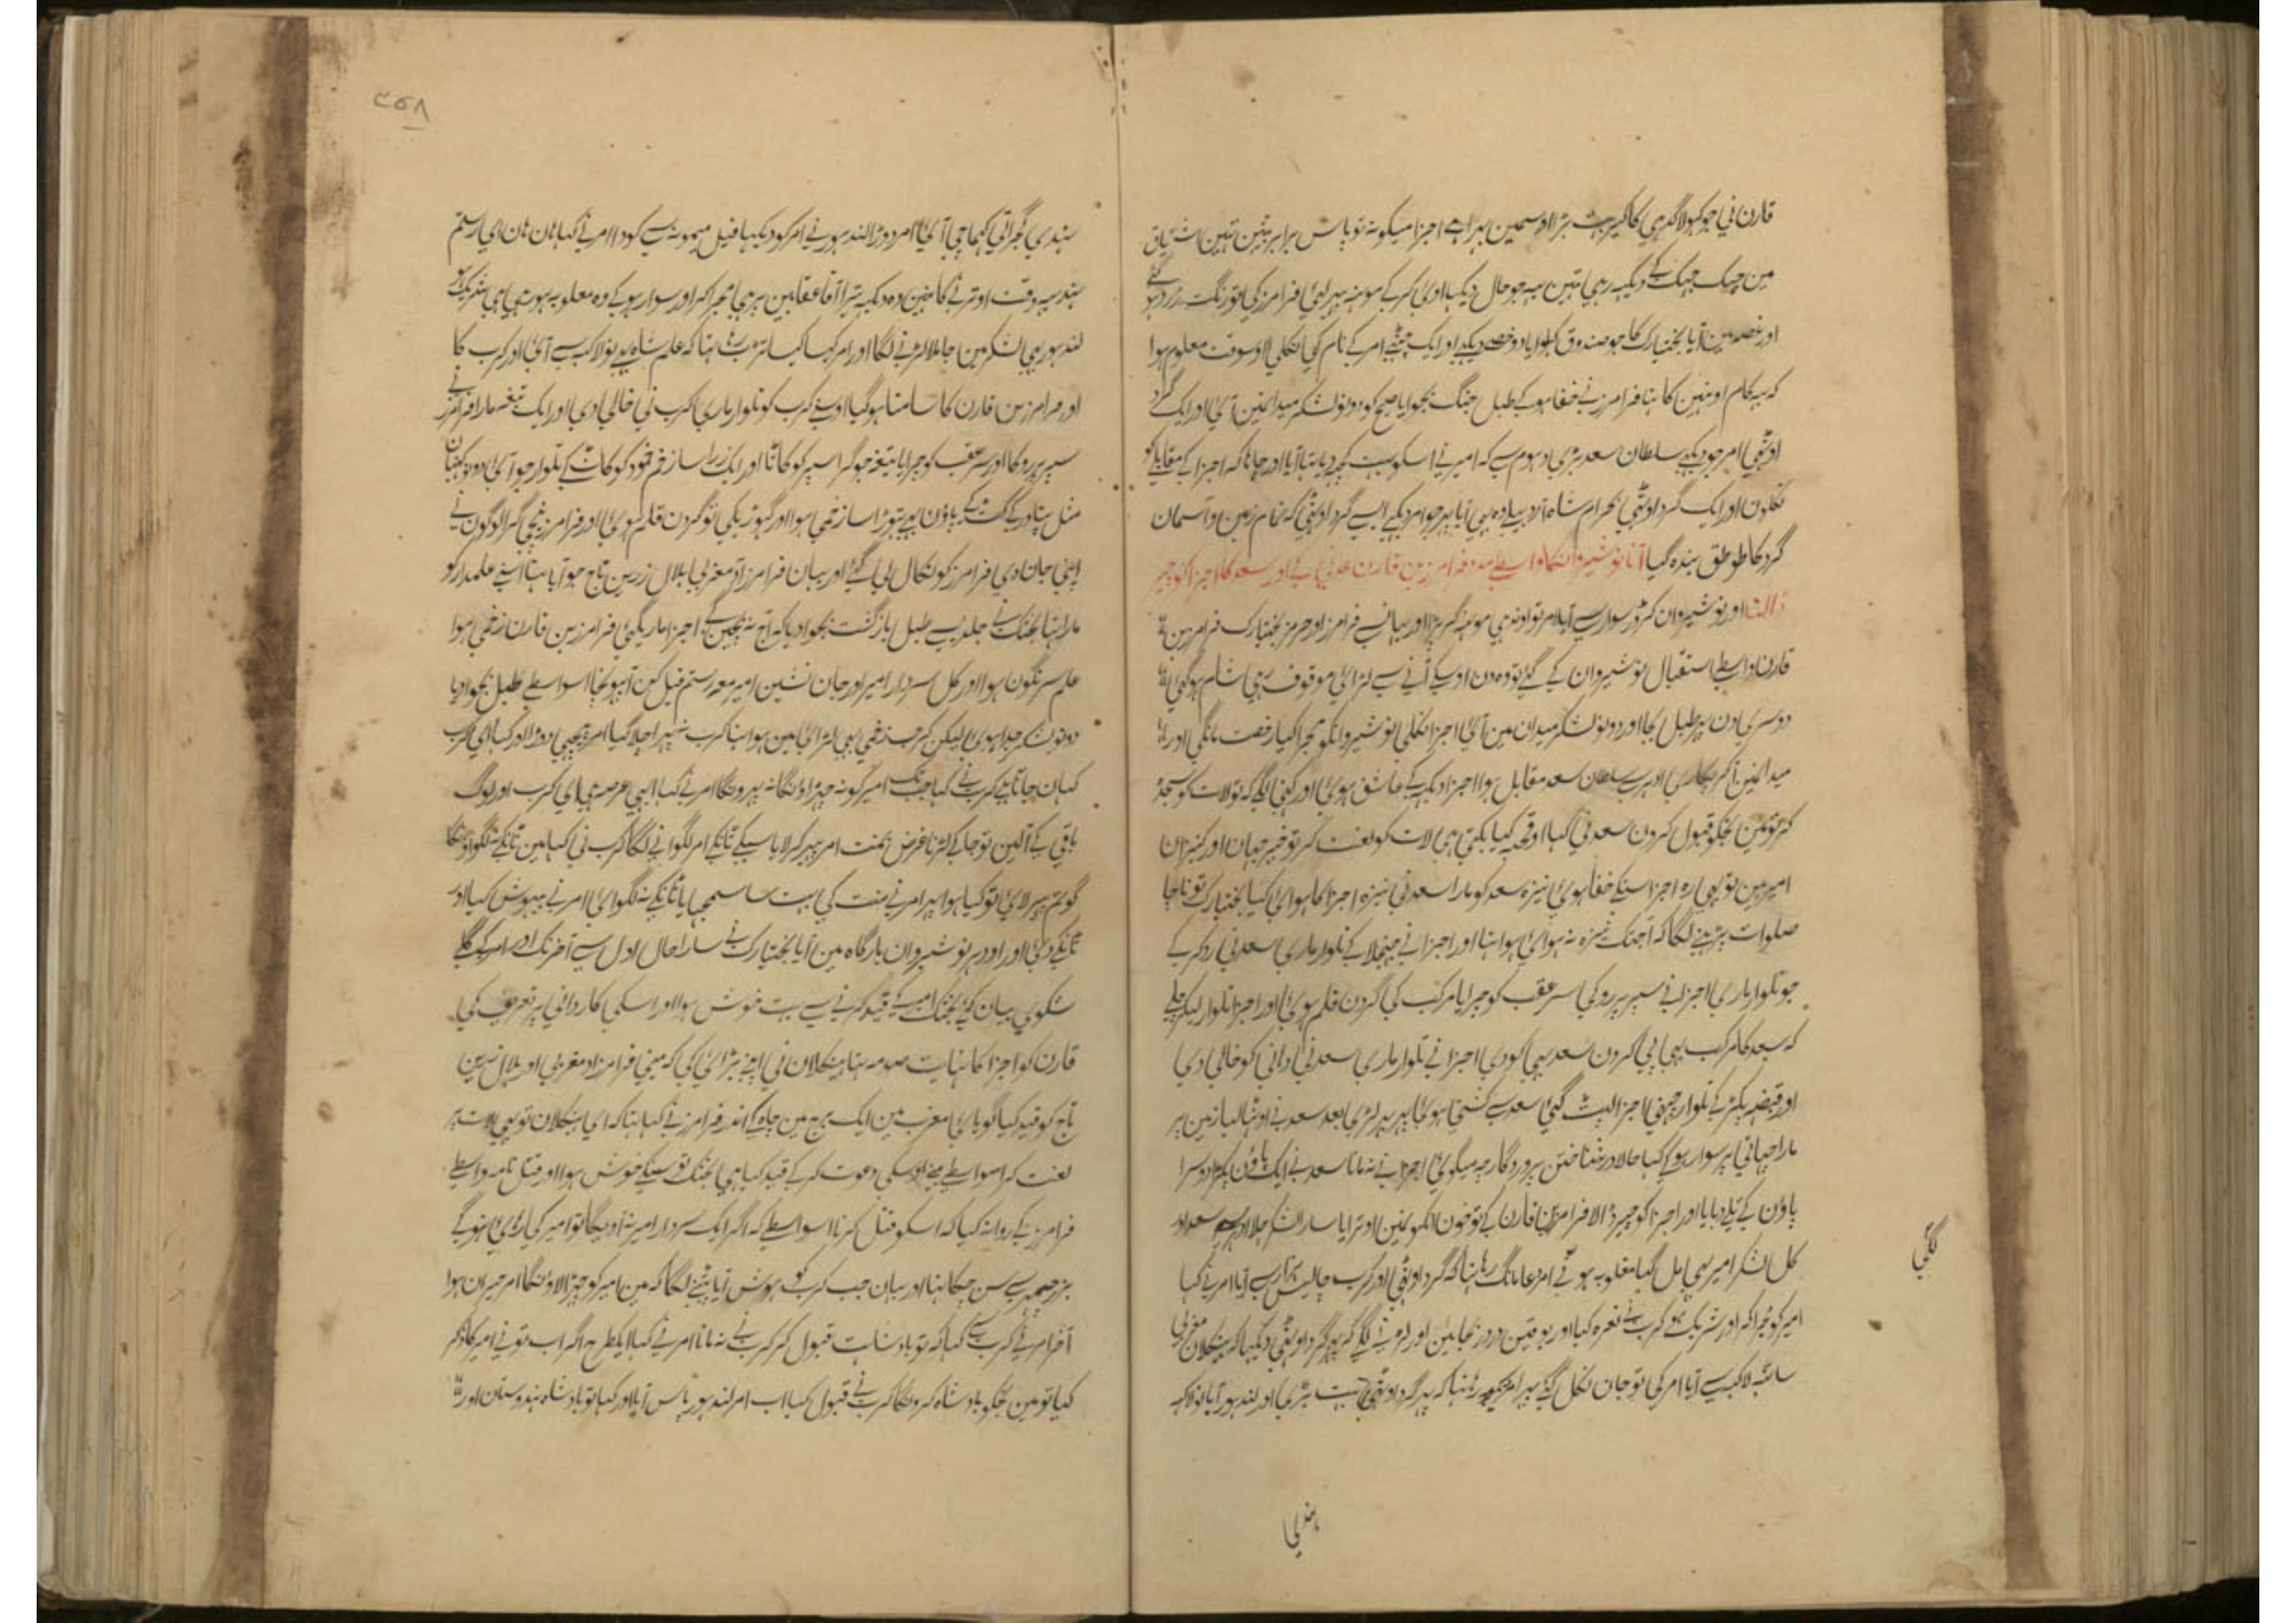 قارن نی جو کہولا گدہی کا کیر بہت بڑا اوسمین بہرا ہے اجزا میگونہ تو پاس برابر بیٹہین تہین اشتیاق
مین جہک جہک کے دیکہہ رہی تہین یہہ جو حال دیکہا اوئی کرکے مونہہ پہیر لیا فرامرز کی تو رنگت زرد ہو گئے
اور غصہ مین آیا بختیارک کا جو صندوق کہلوایا دو خصے دیکہے اور ایک چٹہے امر کے نام کی نکلی اوسوقت معلوم ہوا
کہ یہہ کام اونہین کا تہا فرامرز نے خفا ہوکے طبل جنگ بجوایا صبح کو دونو لشکر میدانمین آئی اور ایک گرد
اوٹہی امر جو دیکہے سلطان سعد بڑی دہوم سے کہ امیر نے اسکو بہت کچہہ دیا تہا آیا اور چاہا کہ اجزا کے مقابلہ کو
نکلون اور ایک گرد اوٹہی بہرام شاہ پیادہ بہی آیا پہر جو امر دیکہے ایسے گرد اوٹہی کہ تمام زمین و آسمان
گرد کا طوطق بندہ گیا آنا نوشیروانکا واسطے مدد فرامرز بن قارن عدنی کے اور سعد کا اجزا کو چیر
ڈالنا اور نوشیروان کرڈر سوار سے آیا امر تو اوندہی مونہہ گر پڑا اور یہانسے فرامرز اور حرمز بختیارک فرامرز بن
قارن واسطے استقبال نوشیروان کے گئے تو دہ دن اوسکے آنے سے لڑائی موقوف رہی شام ہوگئی
دوسری دن پہر طبل بجا اور دونو لشکر میدان مین آئی اجزا نکلی نوشیروانکو مجرا کیا رخصت مانگی اور
میدانمین آکر پکاری ادہر سے سلطان سعد مقابل ہوا اجزا دیکہہ کے عاشق ہوئی اور کہنی لگی کہ تو لات کو سجدہ
کر تو مین تجکو قبول کرون سعد نی کہا او قحبہ کیا بکتی ہی لات کو لعنت کر تو خیر جہان اور کنیزان
امیر ہین تو بہی رہ اجزا سنکے خفا ہوئی نیزہ سعد کو مارا سعد نی نیزہ اجزا کا ہوائی کیا بختیارک تو ناچا
صلوات پڑہنے لگا کہ آجتک نیزہ نہ ہوائی ہوا تہا اور اجزا نے جہنجلا کے تلوار ماری سعد نی رد کرکے
جو تلوار ماری اجزا نے سپر پر روکی سر عقب کو جو ایا مرکب کی گردن قلم ہوئی اور اجزا تلوار لیکر چلے
کہ سعد کا مرکب بہی پی کرون سعد بہی کودی اجزا نے تلوار ماری سعد نی دانی کو خالی دی
اور قبضہ پکڑ کے تلوار چہینی اجزا لپٹ گئی سعد سے کشتی ہوئی پہر بعد سعد نے اوٹہا لیا زمین پر
مارا چہاتی پر سوار ہوکے کہا حالا در شناختن پروردگار چہ میگوئی اجزا نے نہ مانا سعد نے ایک پاؤن پکڑا دوسرا
پاؤن کے تلے دبایا اور اجزا کو چیر ڈالا فرامرز بن قارن کے تو خون انکہونمین اوتر آیا سارا لشکر چلا ادہر سے سعد اور
کل لشکر امیر بہی مل گیا مغلوبہ ہونے امر دعا مانگ رہا تہا کہ گرد اوٹہی اور کرب چالیس ہزار سے آیا امر نے کہا
امیر کو مجرا کر اور شریک ہو کرب نے نعرہ کیا اور اور لڑنے لگے کہ پہر گرد اوٹہی دیکہا کہ سنکلان مغربی
ساٹہہ لاکہہ سے آیا امر کی تو جان نکل گئے پہر امر رہا تہا کہ پہر گرد اوٹہی بہت بڑی اور لندہور آیا نو لاکہہ
لگتی
ہندی
۳۵۸
ہندی گجراتی آئی امر دوڑا لندہور نے امر کو دیکہا فیل میمونہ سے کودا امر نے کہا ہان ہان ای رستم
ہند یہہ وقت اوترنے کا نہین وہ دیکہہ تیرا آقا عقابین پر ہی مجرا کر اور سوار ہوکے وہ مغلوبہ ہو رہی ہی شریک ہو
لندہور بہی لشکر مین جا ملا لڑنے لگا اور امر کہہ رہا تہا کہ علم شاہ بہی نو لاکہہ سے آئی اور کرب کا
اور فرامرز بن قارن کا سامنا ہوگیا اوسنے کرب کو تلوار ماری کرب نی خالی دی اور ایک تیغہ مارا فرامرز نے
سپر پر روکا اور سر عقب کو جو ایا تیغہ جو گرا سپر کو کاٹا اور ایک ذرا سا زخم خود کو کاٹ کے تلوار جو آئی
مثل کے پاؤن بہی تہوڑا سا زخمی ہوا اور گہوڑیکی تو گردن قلم ہوئی اور فرامرز نیچی گرا لوگون نے
اپنی جان دی فرامرز کو نکال لی گئے اور یہان فرامرزاد مغربی ہلال زرین تاج جو آیا تہا اسنے علمدار کو
مارا تہا بختک نے جلدی سے طبل بازگشت بجوا دیا کہ آج نہ بچین گے اجزا ماریگئی فرامرز بن قارن زخمی ہوا
علم سرنگون ہوا اور کل سردار امیر اور جان نشین امیر معہ رستم فیل کن آپہونچا اسواسطے طبل بجوا دیا
دونو لشکر جدا ہوئی لیکن کرب زخمی بہی لڑائی مین ہوا تہا کرب پہرا چلا گیا امر پیچہی دوڑا اور کہا ای کرب
کہان جاتا ہے کرب نے کہا جبتک امیر کو نہ چہڑاونگا نہ پہرونگا امر نے کہا ابہی عرصہ ہی ای کرب اور لوگ
باقی کے آلین تو جا کے لڑنا غرض بمنت امر پہیر کر لایا سیکے ٹانکے امر لگوانے لگا کرب نی کہا مین ٹانکے نہ لگواونگا
گو تم پہیر لائی تو کیا ہوا پہر امر نے منت کی بہت سا سمجہایا ٹانکے نہ لگوائی امر نے بیہوش کیا اور
ٹانکے دئی اور اودہر نوشیروان بارگاہ مین آیا بختیارک نے سارا حال اول سے آخر تک اور امر کے گلے
شکوی بیان کئے بختک امیر کے قید کرنے سے بہت خوش ہوا اور اسکی کاردانی پر تعریف کی
قارن کو اجزا کا نہایت صدمہ تہا سنکلان نی اپنے بڑائی کی کہ مینی فرامرزاد مغربی اور ہلال زرین
تاج کو قید کیا گویا کہ مغرب مین ایک برج مین چاہ کے اندر فرامرز نے کہا تہا کہ ای سنکلان تو بہی لات پر
لعنت کر اسواسطے مینے اوسکی دعوت کرکے قید کیا ہی بختک تو سنکے خوش ہوا اور قتل نامہ واسطے
فرامرز کے روانہ کیا کہ اسکو قتل کرنا اسواسطے کہ اگر ایک سردار امیر نہ آویگا تو امیر کی رہائی نہوگے
بزرجمہر سے سن چکا تہا اور یہان جب کرب کو ہوش آیا پٹنے لگا کہ مین امیر کو چہڑا لاؤنگا امر حیران ہوا
آخر امر نے کرب سے کہا کہ تو بادشاہت قبول کر کرب نے نہ مانا امر نے کہا ایکطرح اگر اب تو نے امیر کا ذکر
کیا تو مین تجکو بادشاہ کرونگا کرب نے قبول کیا اب امر لندہور پاس آیا اور کہا تو بادشاہ ہندوستان اور